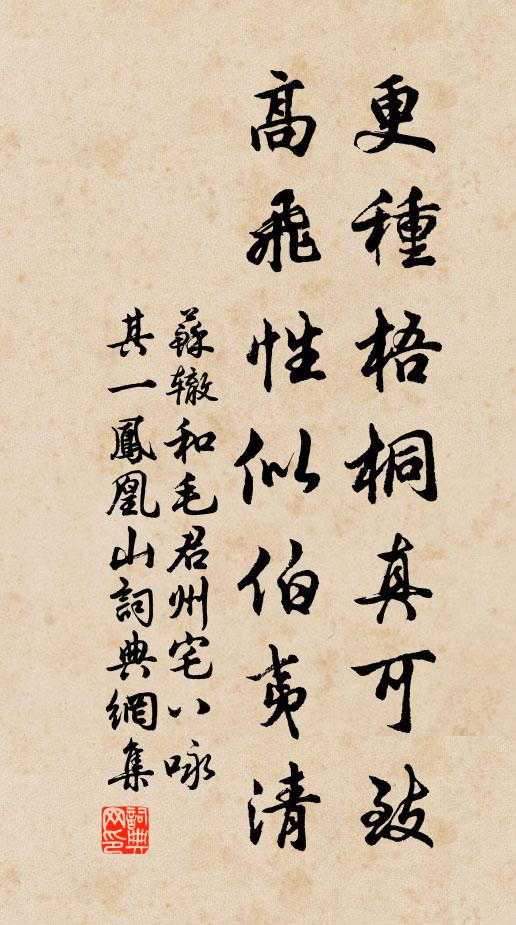 更種梧桐真可致
高飛性似伯夷清
蘇辙和毛君州宅八咏
其一鳳凰山詞典網集
詞典
网印